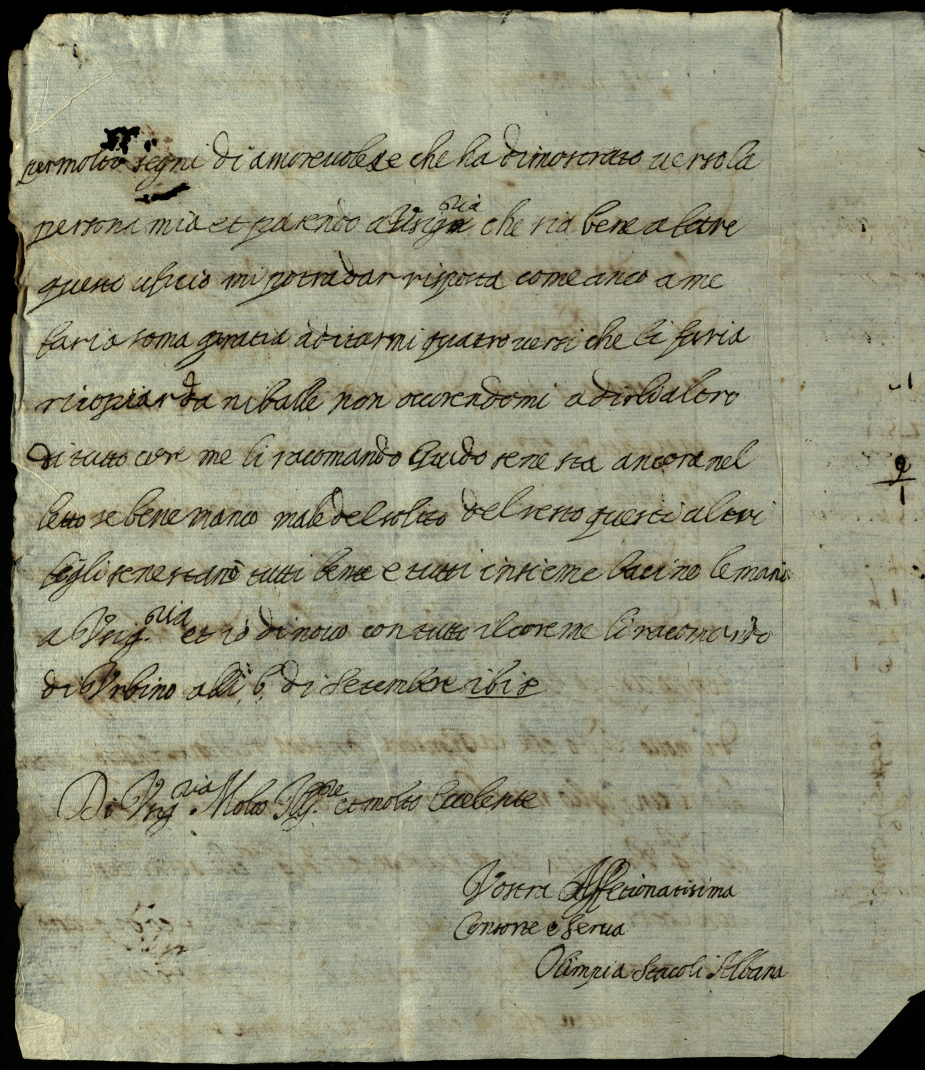 per molti segni di amorevoleze che ha dimostrato verso la
persona mia et parendo a Vsig.ria che sia bene a fare
questo uficio mi potra dar risposta come anco a me
faria soma gratia a ditarmi quatro versi che li faria
ricopiar da niballe non ocurendomi a dirli altro
di tutto core me li racomando Guido se ne sta ancora nel
letto se bene manco male del solito del resto questi altri
figli se ne stano tutti bene e tutti insieme bacino le mani
a Vsig.ria et io di novo con tutto il core me li racomando
di Urbino alli 6 di setembre 1618
Di Vsig.ria Molto Ill.re et molto Ecelente
Vostra Affetionatisima
Consorte e serva
Olimpia Stacoli Albana